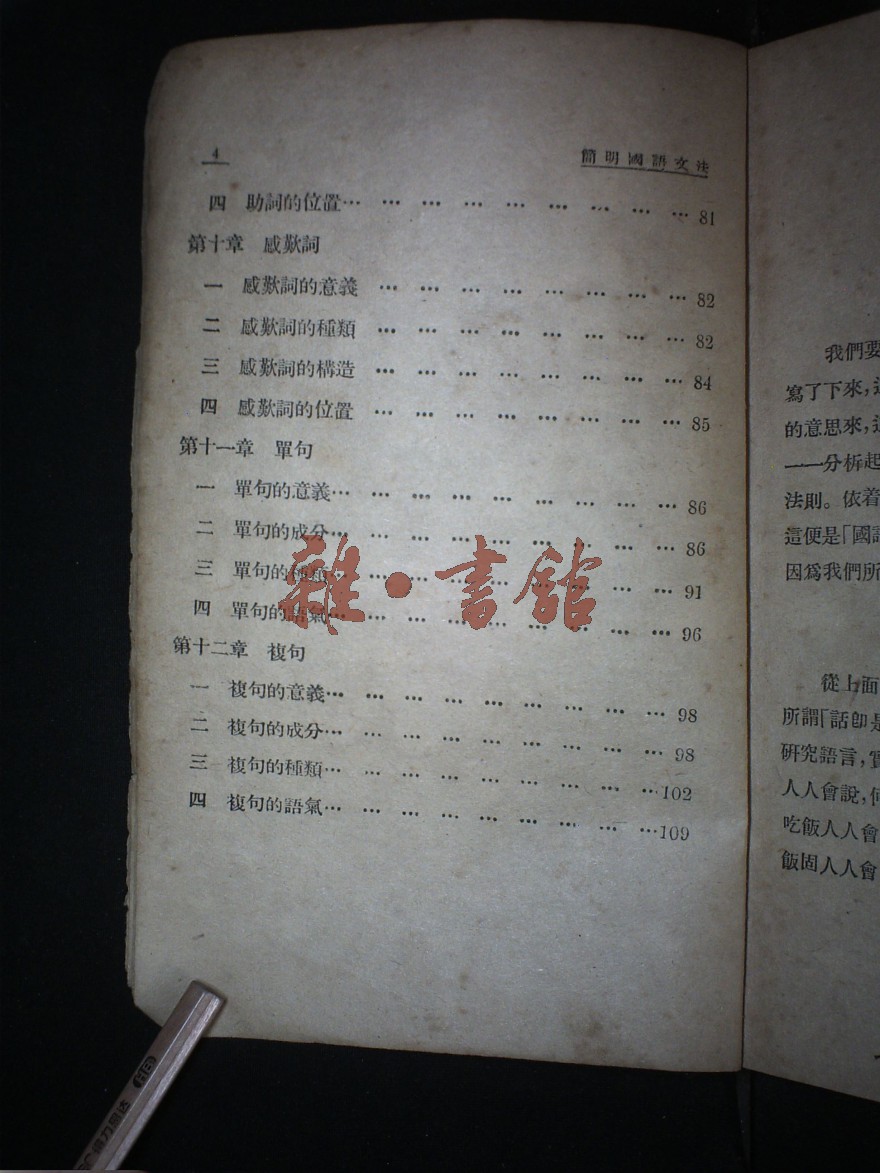 4
簡明國語文法
四 助詞的位置… … … … … … … … … … 81
第十章 感歎詞
一 感歎詞的意義 … … … … … … … … 82
二 感歎詞的種類 … … … … … … … … 82
三 感歎詞的構造 … … … … … … … … 84
四 感歎詞的位置 … … … … … … … … 85
第十一章 單句
一 單句的意義… … … … … … … … … 86
二 單句的成分… … … … … … … … … 86
三 單句的種類… … … … … … … … … 91
四 單句的語氣… … … … … … … … … 96
第十二章 複句
一 複句的意義… … … … … … … … … 98
二 複句的成分… … … … … … … … … 98
三 複句的種類… … … … … … … … …102
四 複句的語氣… … … … … … … … …109
雜·書館
我們要
寫了下來,
的意思來,
一一分析起
法則。依着
這便是「國語
因爲我們所
從上面
所謂「話卽是
研究語言,實
人人會說,何
吃飯人人會
飯固人人會
HB